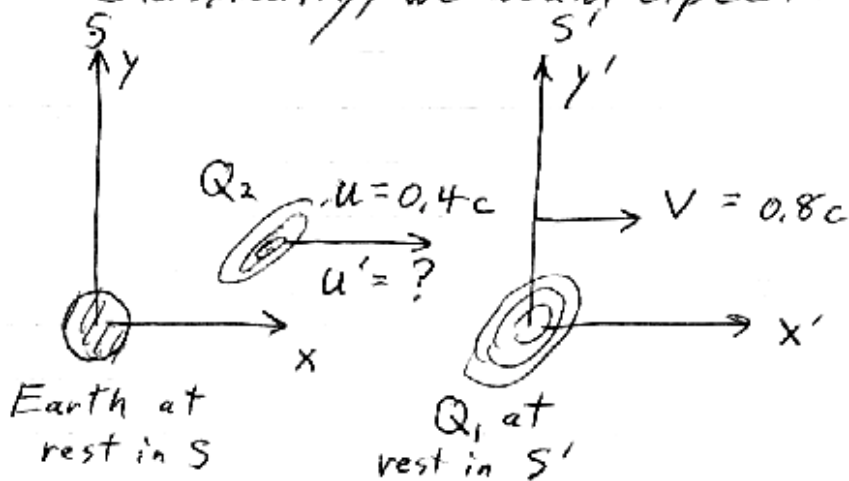 S
S'
y
y'
Q₂
u = 0.4c
V = 0.8c
u' = ?
x
x'
Earth at
rest in S
Q₁ at
rest in S'